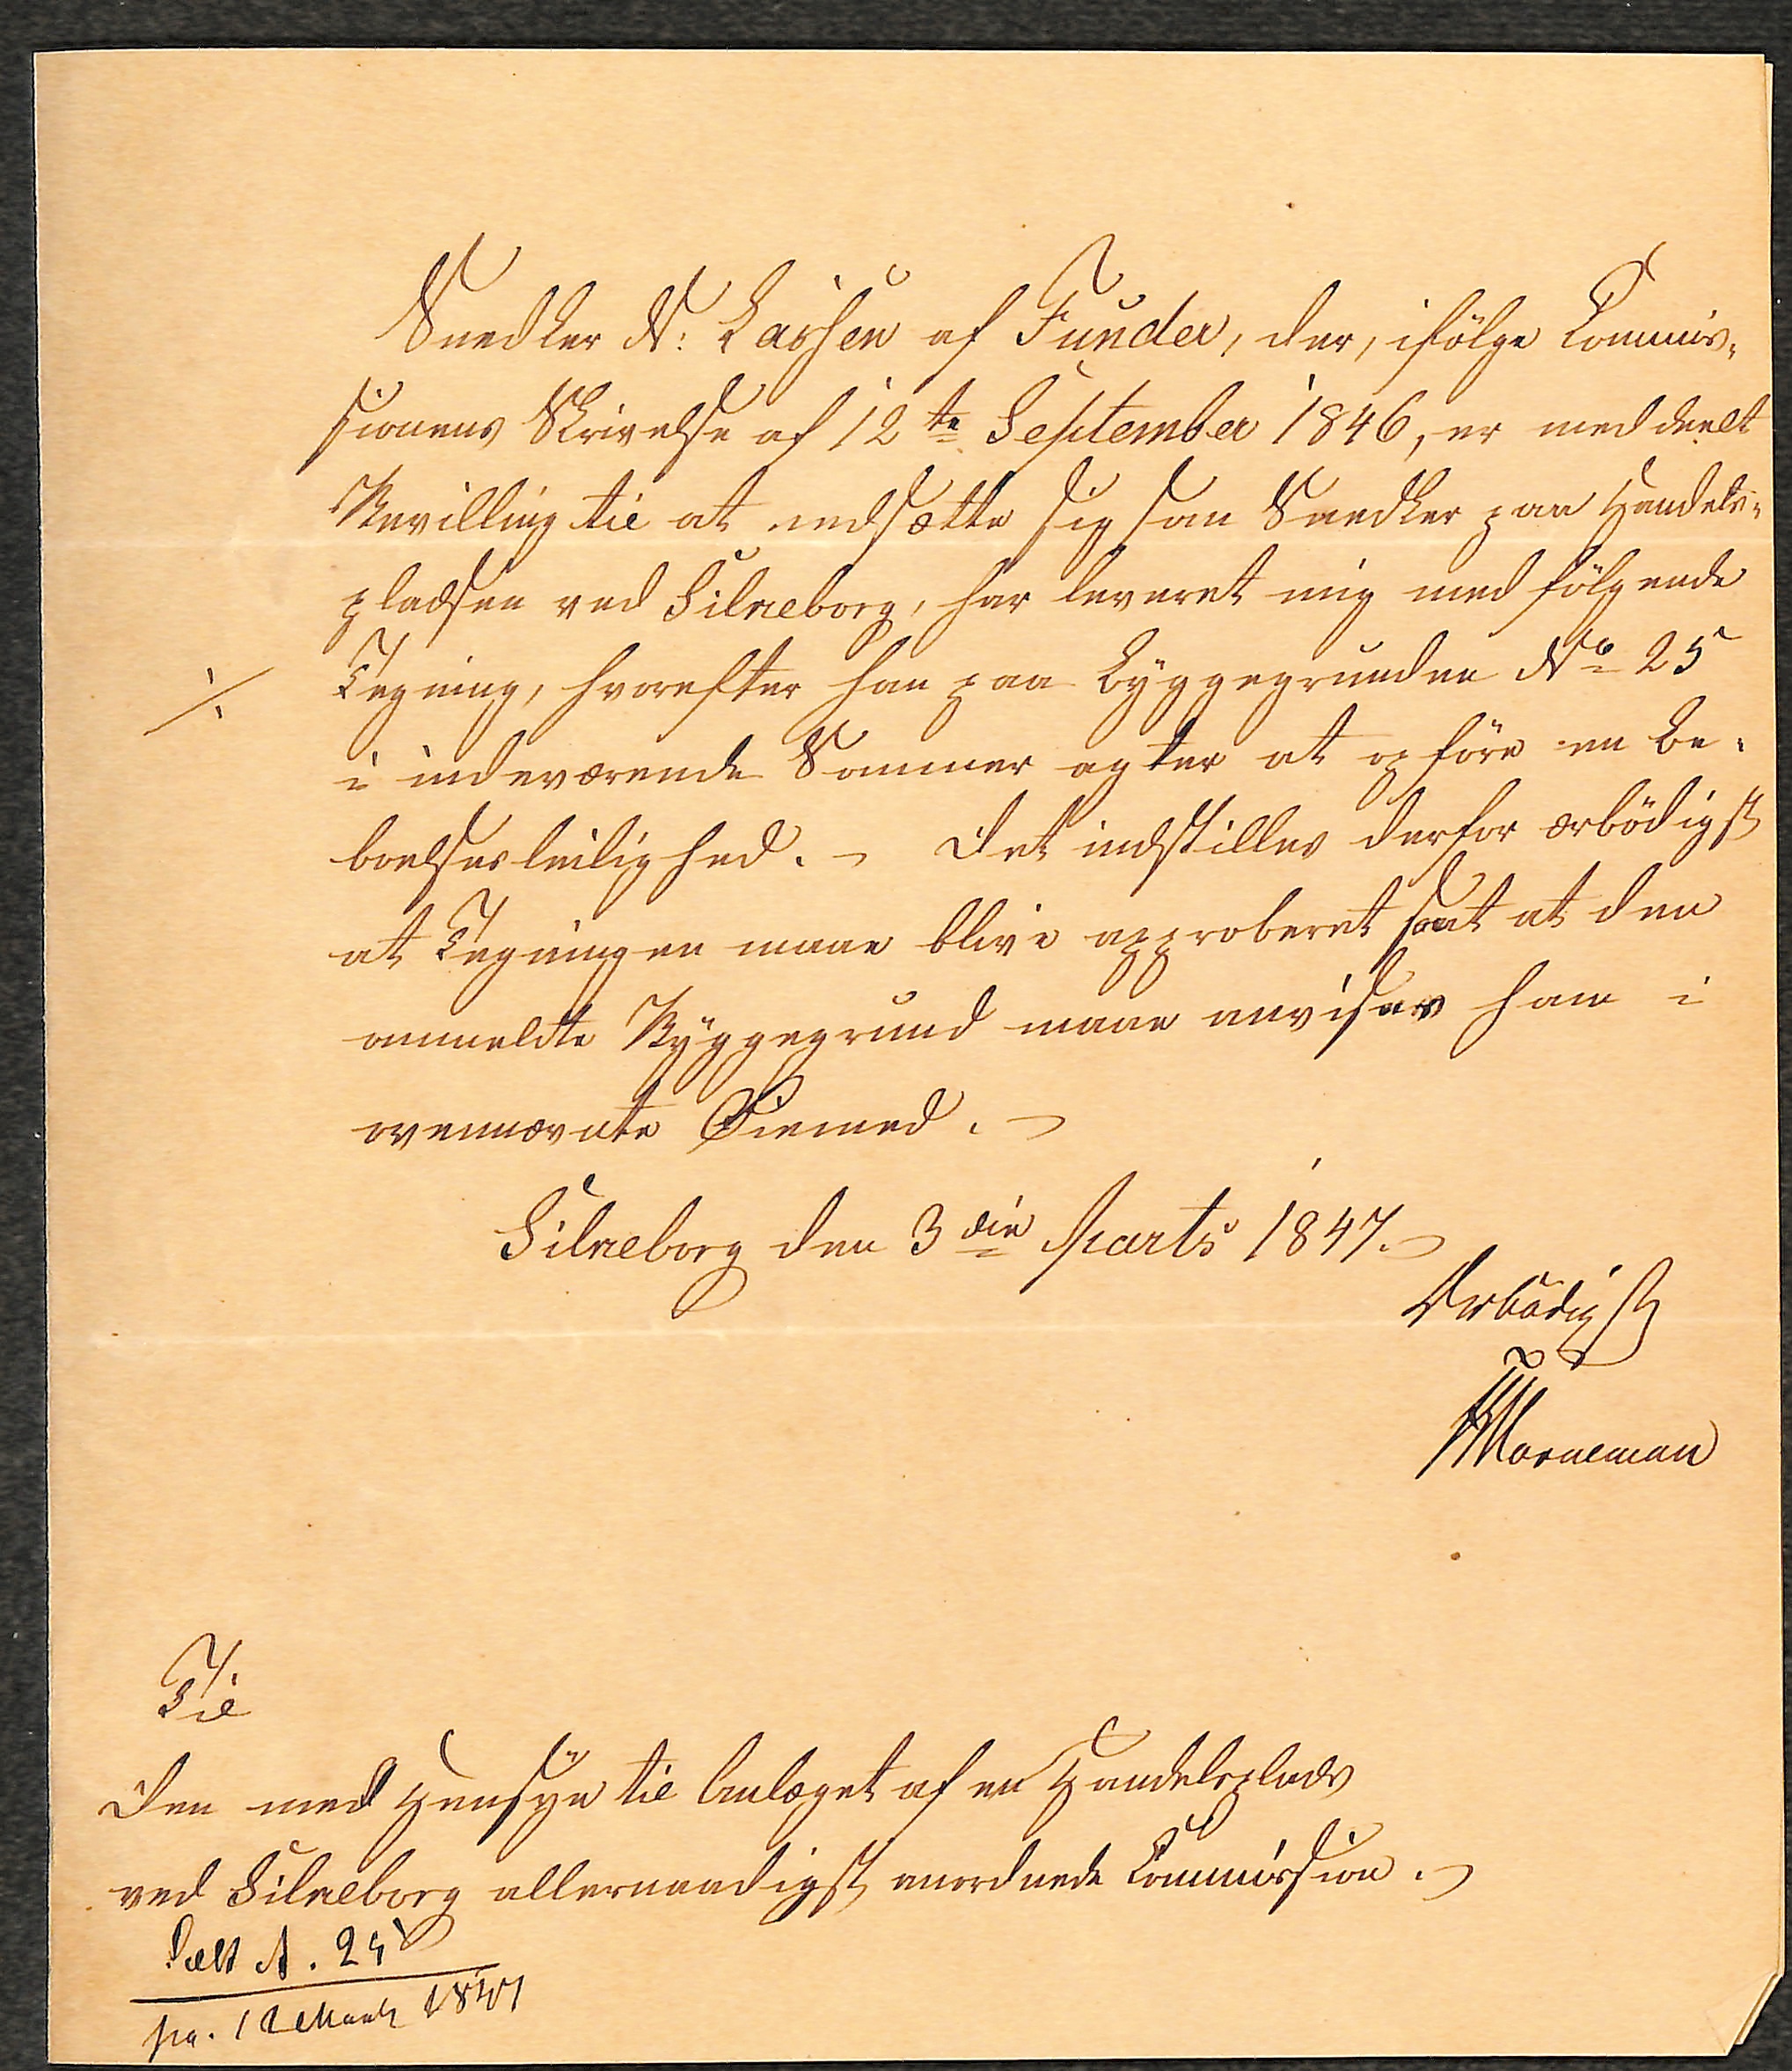 Snedker N: Lassen af Funder, der, ifölge Commis-
sionens Skrivelse af 12te September 1846, er meddeelt
Bevilling til at nedsætte sig som Snedker paa Handels-
pladsen ved Silkeborg, har leveret mig medfölgende
⁒ Tegning, hvorefter han paa Byggegrunden No 25
i indeværende Sommer agter at opföre en Be-
boelsesleilighed. - Det indstilles derfor ærbödigst
at Tegningen maae blive approberet samt at den
anmeldte Byggegrund maae anvises ham i
ovennævnte Øiemed. -
Silkeborg den 3die Marts 1847. -
Ærbödigst
Worneman
Til
Den med Hensyn til Anlæget af en Handelsplads
ved Silkeborg allernaadigst anordnede Commission. -
N. 25
12 Marts 1847